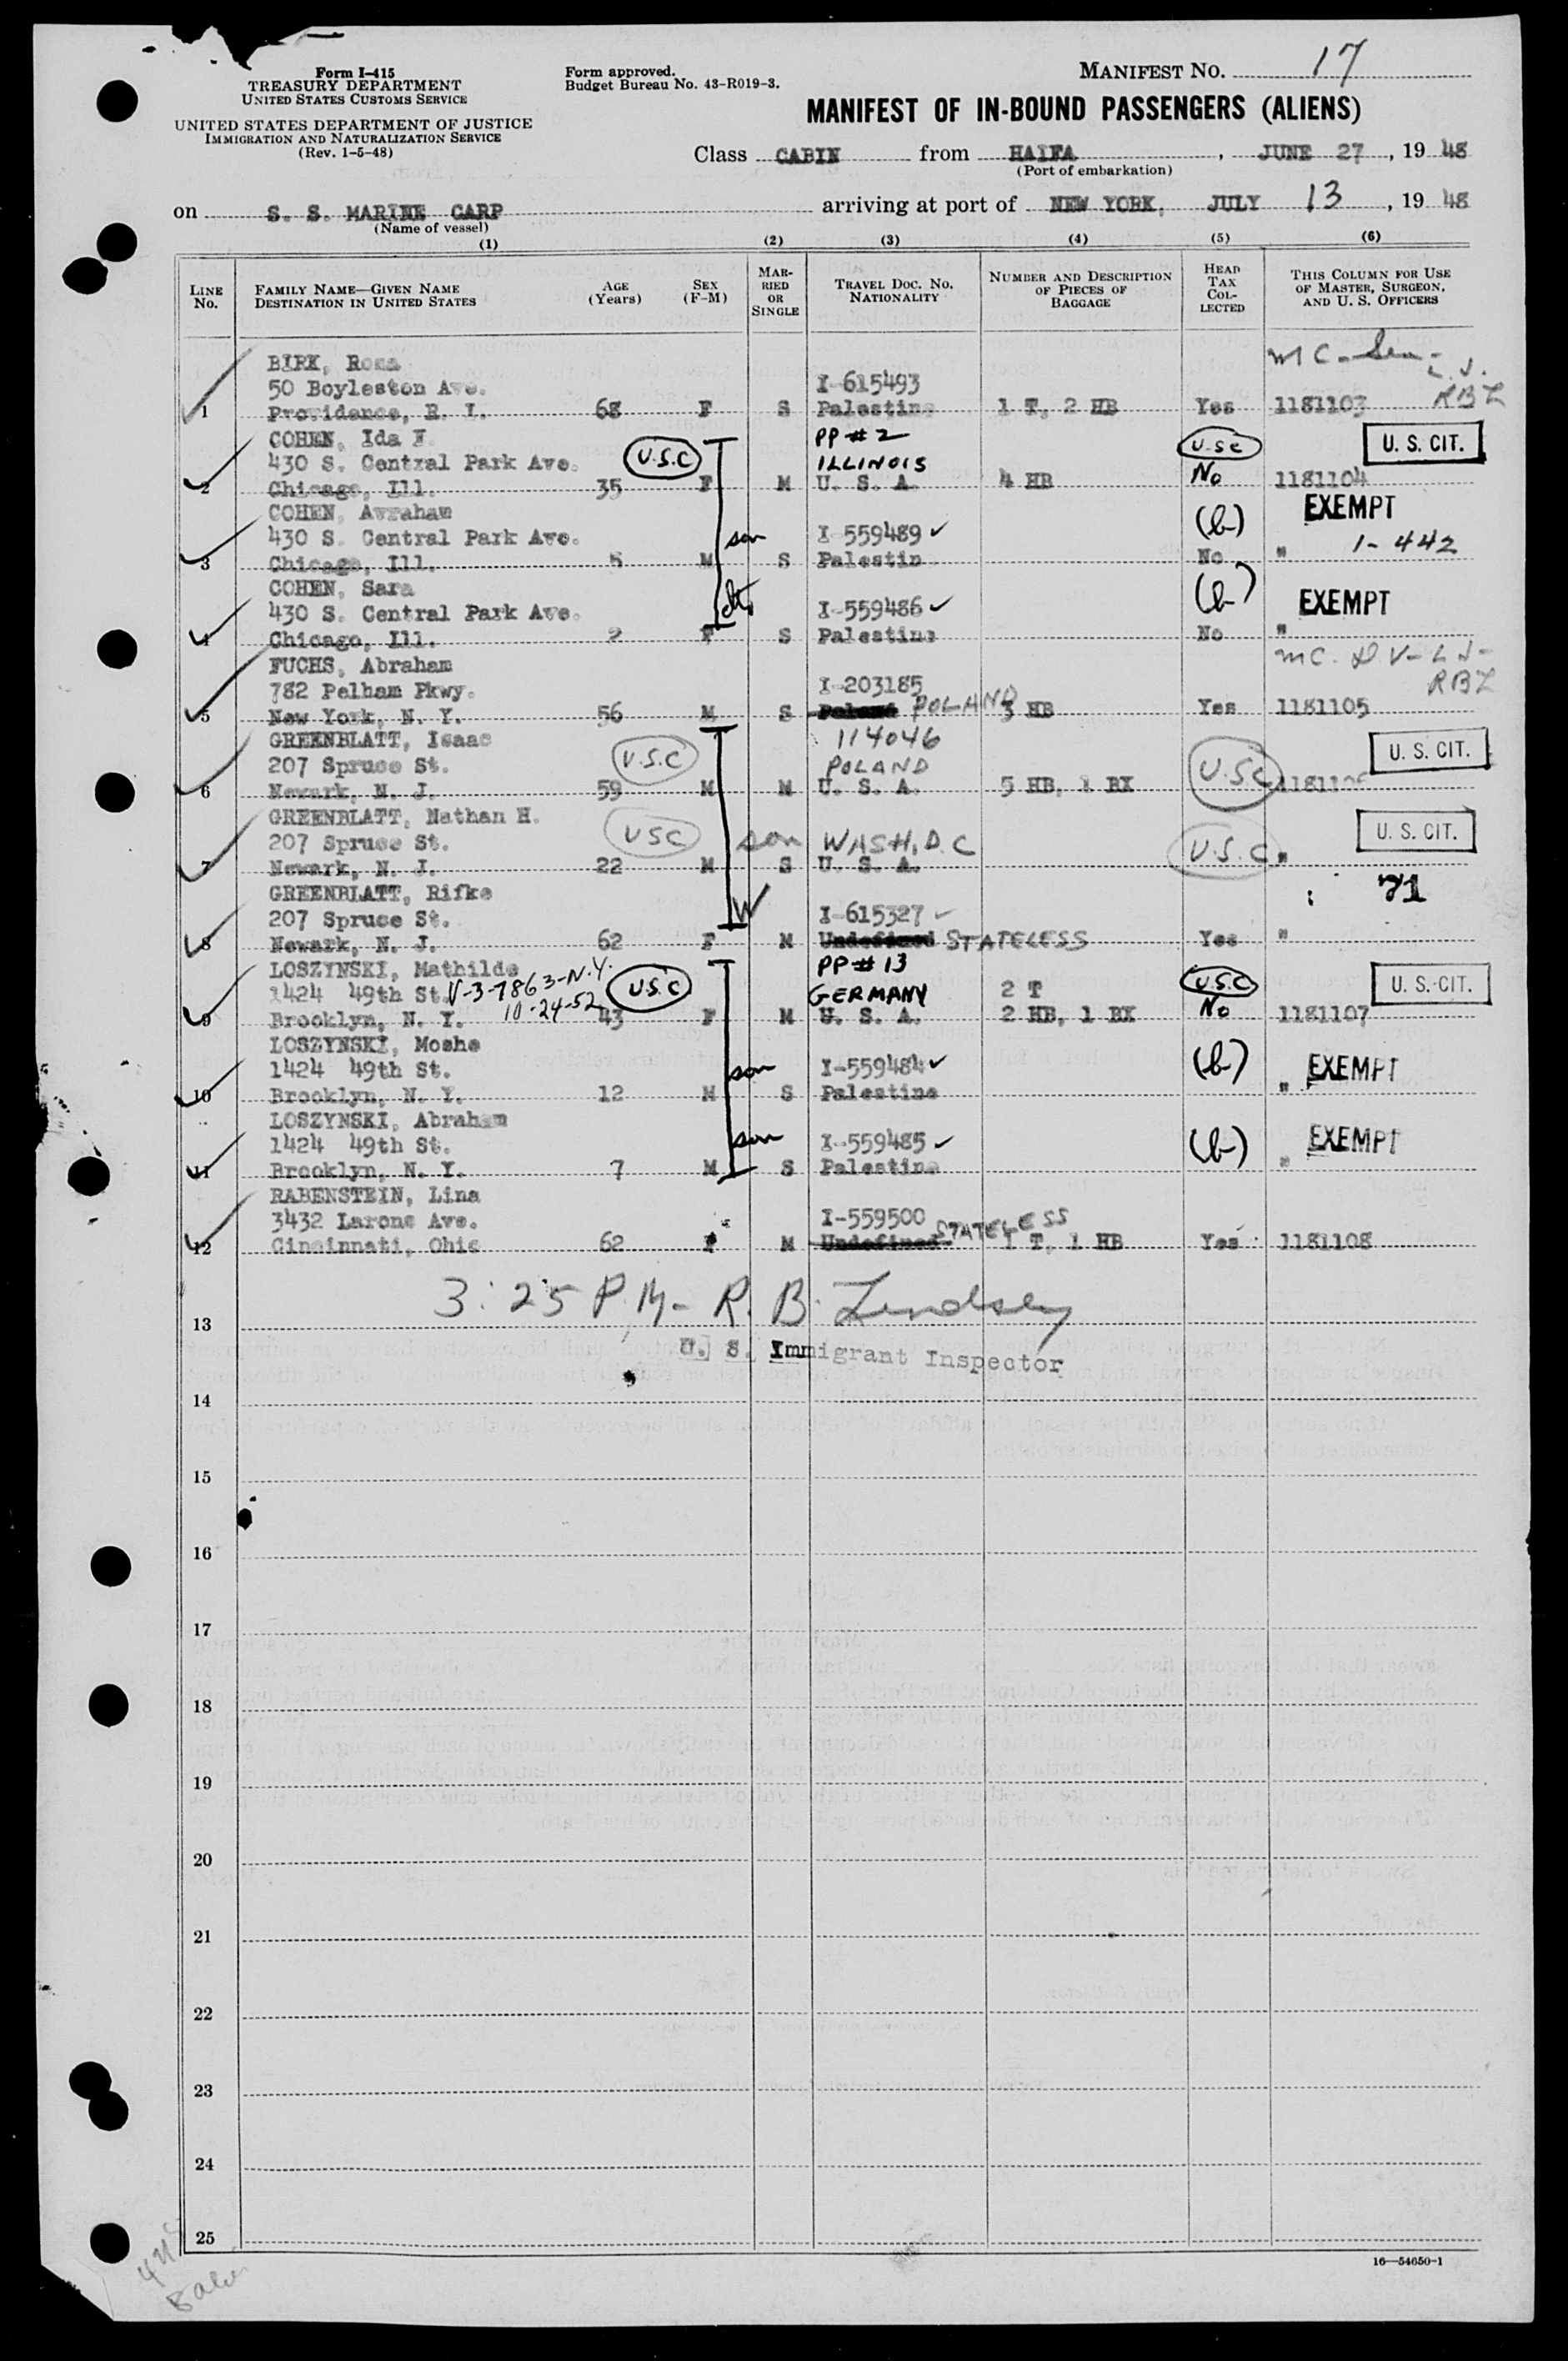 Form I-415
TREASURY DEPARTMENT
UNITED STATES CUSTOMS SERVICE
UNITED STATES DEPARTMENT OF JUSTICE
IMMIGRATION AND NATURALIZATION SERVICE
(Rev. 1-5-48)
Form approved.
Budget Bureau No. 43-R019-3.
MANIFEST NO. 17
MANIFEST OF IN-BOUND PASSENGERS (ALIENS)
Class CABIN from HAIFA, JUNE 27, 1948
(Port of embarkation)
on S. S. MARINE CARP arriving at port of NEW YORK, JULY 13, 1948
(Name of vessel)
(1) (2) (3) (4) (5) (6)
LINE No.
FAMILY NAME—GIVEN NAME
DESTINATION IN UNITED STATES
AGE (Years)
SEX (F-M)
MARRIED OR SINGLE
TRAVEL DOC. NO. NATIONALITY
NUMBER AND DESCRIPTION OF PIECES OF BAGGAGE
HEAD TAX COLLECTED
THIS COLUMN FOR USE OF MASTER, SURGEON, AND U. S. OFFICERS
BIRK, Rosa
50 Boyleston Ave. I-615493
1 Providence, R. I. 68 F S Palestine 1 T, 2 HB Yes 1181103 RBL
COHEN, Ida F. PP # 2
430 S. Central Park Ave. U.S.C ILLINOIS U.S.C U. S. CIT.
2 Chicago, Ill. 35 F M U. S. A. 4 HB No 1181104
COHEN, Avraham EXEMPT
430 S. Central Park Ave. son I-559489 ✓ (b) 1-442
3 Chicago, Ill. 5 M S Palestin No "
COHEN, Sara
430 S. Central Park Ave. I-559486 ✓ (b) EXEMPT
4 Chicago, Ill. 2 F S Palestine No "
FUCHS, Abraham
782 Pelham Pkwy. I-203185 RBL
5 New York, N. Y. 56 M S POLAND 3 HB Yes 1181105
GREENBLATT, Isaac 114046
207 Spruce St. U.S.C POLAND U.S.C U. S. CIT.
6 Newark, N. J. 59 M M U. S. A. 5 HB, 1 BX 1181106
GREENBLATT, Nathan H.
207 Spruce St. USC son WASH, D.C U.S.C U. S. CIT.
7 Newark, N. J. 22 M S U. S. A. "
GREENBLATT, Rifke 71
207 Spruce St. W I-615327 ✓
8 Newark, N. J. 62 F M Undefined STATELESS Yes "
LOSZYNSKI, Mathilde PP # 13
1424 49th St. V-3-7863-N.Y. 10-24-52 U.S.C GERMANY 2 T U.S.C U. S. CIT.
9 Brooklyn, N. Y. 43 F M U. S. A. 2 HB, 1 BX No 1181107
LOSZYNSKI, Moshe
1424 49th St. son I-559484 ✓ (b) EXEMPT
10 Brooklyn, N. Y. 12 M S Palestine "
LOSZYNSKI, Abraham
1424 49th St. son I-559485 ✓ (b) EXEMPT
11 Brooklyn, N. Y. 7 M S Palestine "
RABENSTEIN, Lina
3432 Larona Ave. I-559500 STATELESS
12 Cincinnati, Ohio 62 F M Undefined 1 T, 1 HB Yes 1181108
3:25 P.M- R. B. Lindsey
13
U. S. Immigrant Inspector
14
15
16
17
18
19
20
21
22
23
24
25
16—54650-1